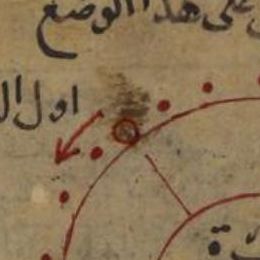 على هذا الوضع
اول ال